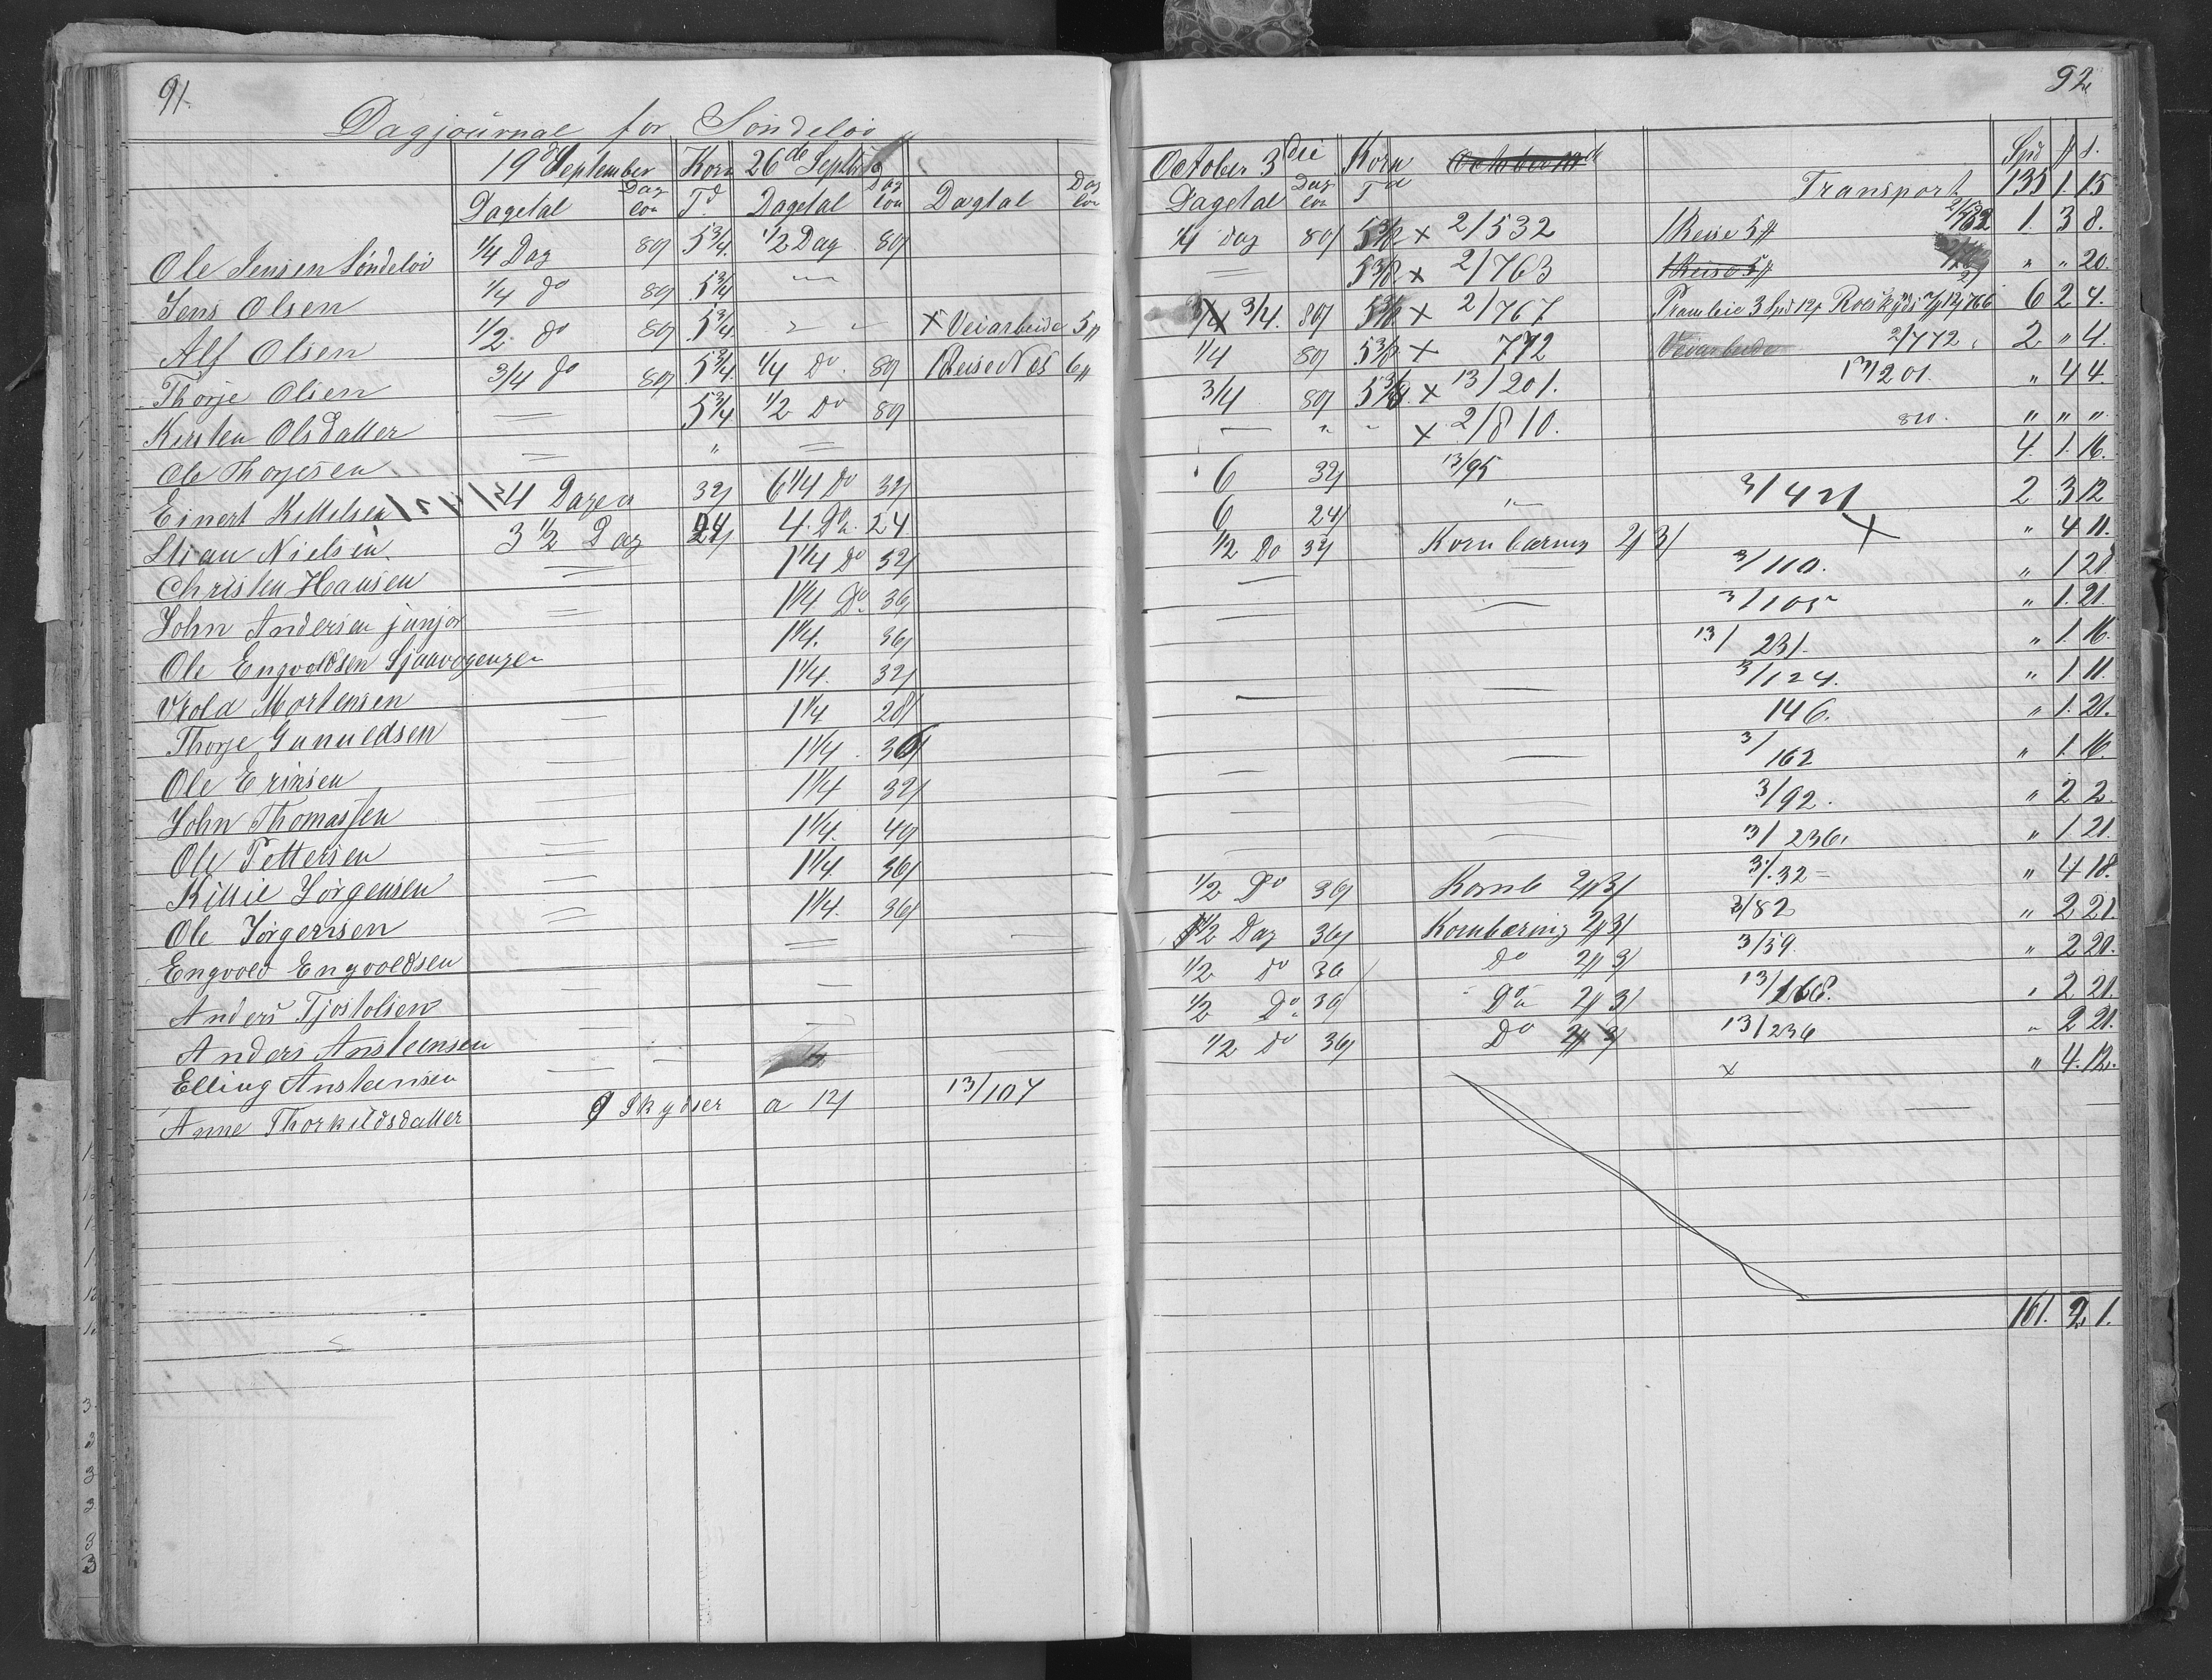 91.
Dagjournal for Söndeløv
19de September Korn 26de Septbr
Dagetal Dag lön Td. Dagetal Dag lön Dagtal Dag lön
Ole Jensen Söndelöv 1/4 Dag 80/ 5 3/4. 1/2 Dag 80/
Jens Olsen 1/4 do 80/ 5 3/4 —
Alf Olsen 1/2 do 80/ 5 3/4. " — x Veiarbeide 5
Thorje Olsen 3/4 do 80/ 5 3/4. 1/4 Do. 80/ 1 Reise Næs 6
Kirsten Olsdatter — 5 3/4. 1/2 Do 80/
Ole Thorjesen — " —
Einert Kittelsen 4 Dage 32/ 6 1/4 Do 32/
Stian Nielsen 3 1/2 Dag 24/ 4. Do. 24
Christen Hansen — 1 1/4 Do 32/
John Andersen junjor — 1 1/4 Do. 36/
Ole Engvoldsen Sjaavogengen — 1 1/4. 36/
Wrold Mortensen — 1 1/4. 32/
Thorje Gunueldsen — 1 1/4 28/
Ole Eriksen — 1 1/4. 36/
John Thomassen — 1 1/4 32/
Ole Pettersen — 1 1/4. 40/
Killie Jörgensen — 1 1/4. 36/
Ole Jörgensen — 1 1/4. 36/
Engvold Engvoldsen — — —
Anders Tjostolsen — —
Anders Anstensen — —
Elling Anstensen — —
Anne Thorkildsdatter Skydser a 12/ 13/107
92.
October 3die Korn October 10de Spd
Dagetal Dag lön Td Transport 135 1. 15
1/4 dag 80/ 5 3/8 x 2/532 1 Reise 5 1. 3 8.
— 5 3/8 x 2/763 1 Reise 5 " " 20.
3/4. 80/ 5 3/8 x 2/767 3 Spd 12 6 2 4.
1/4 80/ 5 3/8 x 772 Veiarbeide 2/772. 2 " 4.
3/4 80/ 5 3/8 x 13/201. 13/201. " 4 4.
— " - x 2/810. 810. " " "
6 32/ 13/95 4. 1. 16.
6 24/ " 3/421 2 3 12
1/2 Do 32/ Kornbæring 2 3/ x " 4 11.
— — 3/110. " 1 21
— — 3/105 " 1. 21.
— — 13/231. " 1. 16.
— — 3/124. " 1 11.
— — 146. " 1. 21.
— — 3/162 " 1. 16.
— — 3/92. " 2 2.
— — 13/236. " 1 21.
1/2 Do 36/ Kornb 2 3/ 3/.32 - " 4 18.
1/2 Dag 36/ Kornbæring 2 3/ 3/82 " 2 21.
1/2 do 36 Do 2 3/ 3/59. " 2 20.
1/2 Do. 36/ Do. 2 3/ 13/168. " 2 21.
1/2 do 36/ Do 2 3/ 13/236 " 2 21.
x " 4. 12.
161. 2 1.